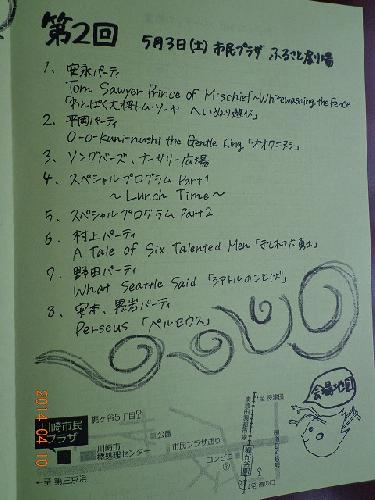 第2回
5月3日(土) 市民プラザ ふるさと劇場
1、 安永パーティ
Tom Sawyer Prince of Mischief ~Whitewashing the Fence
「わんぱく大将トム・ソーヤ へいぬり遊び」
2、 平岡パーティ
O-o-kuni-nushi the Gentle King 「オオクニヌシ」
3、 ソングバーズ、ナーサリー広場
4、 スペシャルプログラム Part 1
~ Lunch Time ~
5、 スペシャルプログラム Part 2
6、 村上パーティ
A Tale of Six Talented Men
7、 野田パーティ
What Seattle Said
8、 パーティ
Perseus 「ペルセウス」
会場地図
川崎市民
プラザ
川崎市
公園
市民プラザ通り
コンビニ
←至 第三京浜
2014.04.10